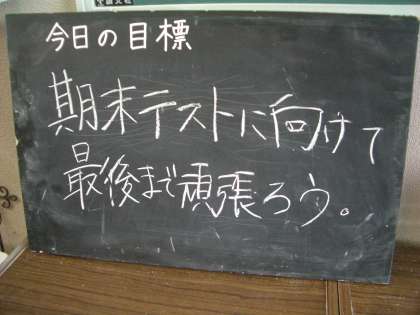 今日の目標
期末テストに向けて
最後まで頑張ろう。